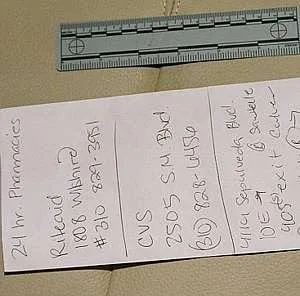 24 hr. Pharmacies
Riteaid
1808 Wilshire
#310 829-3951
CVS
2505 S.M. Blvd.
(310) 828-6456
Sepulveda Blvd.
& Sawtelle
405 exit Culver